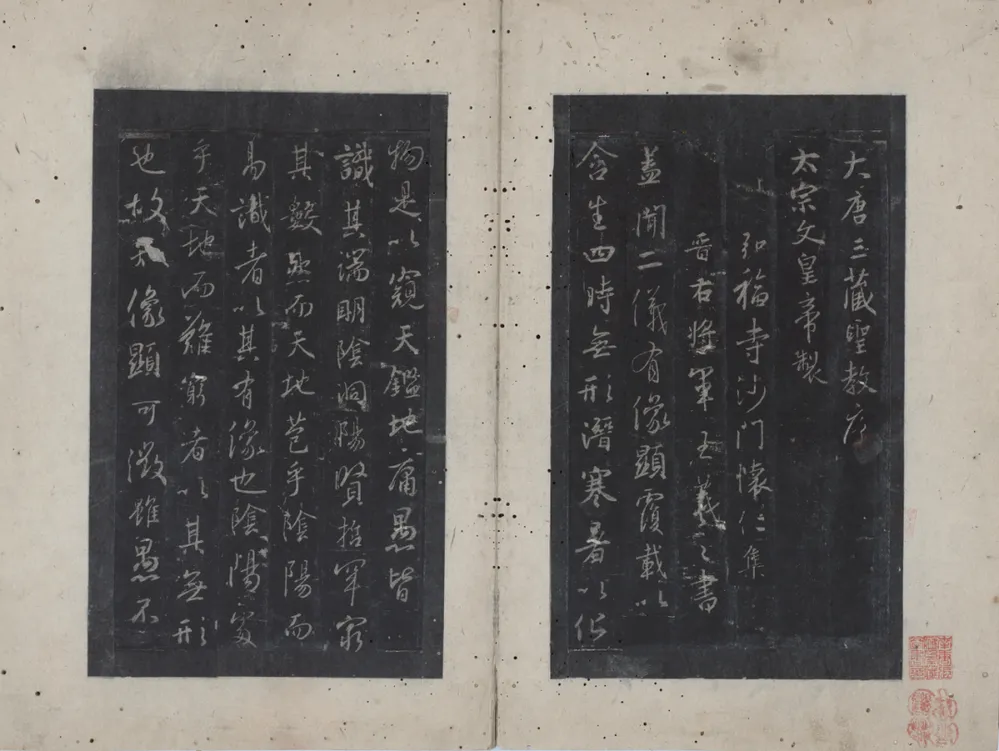 大唐三藏聖教序
太宗文皇帝製
弘福寺沙門懷仁集
晉右將軍王羲之書
蓋聞二儀有像顯覆載以
含生四時無形潛寒暑以化
物是以窺天鑑地庸愚皆
識其端明陰洞陽賢哲罕窮
其數然而天地苞乎陰陽而
易識者以其有像也陰陽處
乎天地而難窮者以其無形
也故知像顯可徵雖愚不